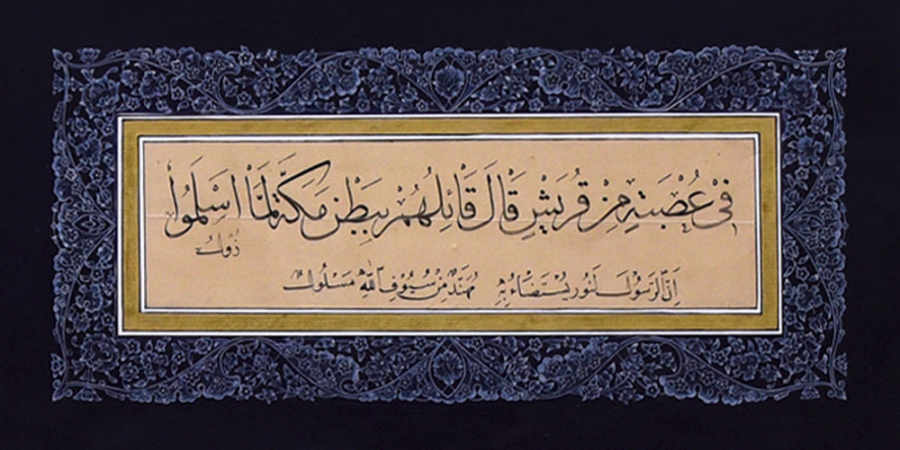 في عُصْبَةٍ مِنْ قُرَيْشٍ قَالَ قَائِلُهُمْ بِبَطْنِ مَكَّةَ لَمَّا اَسْلَمُوا
زُولُوا
اِنَّ الرَّسُولَ لَنُورٌ يُسْتَضَاءُ بِهِ مُهَنَّدٌ مِنْ سُيُوفِ اللّٰهِ مَسْلُولُ